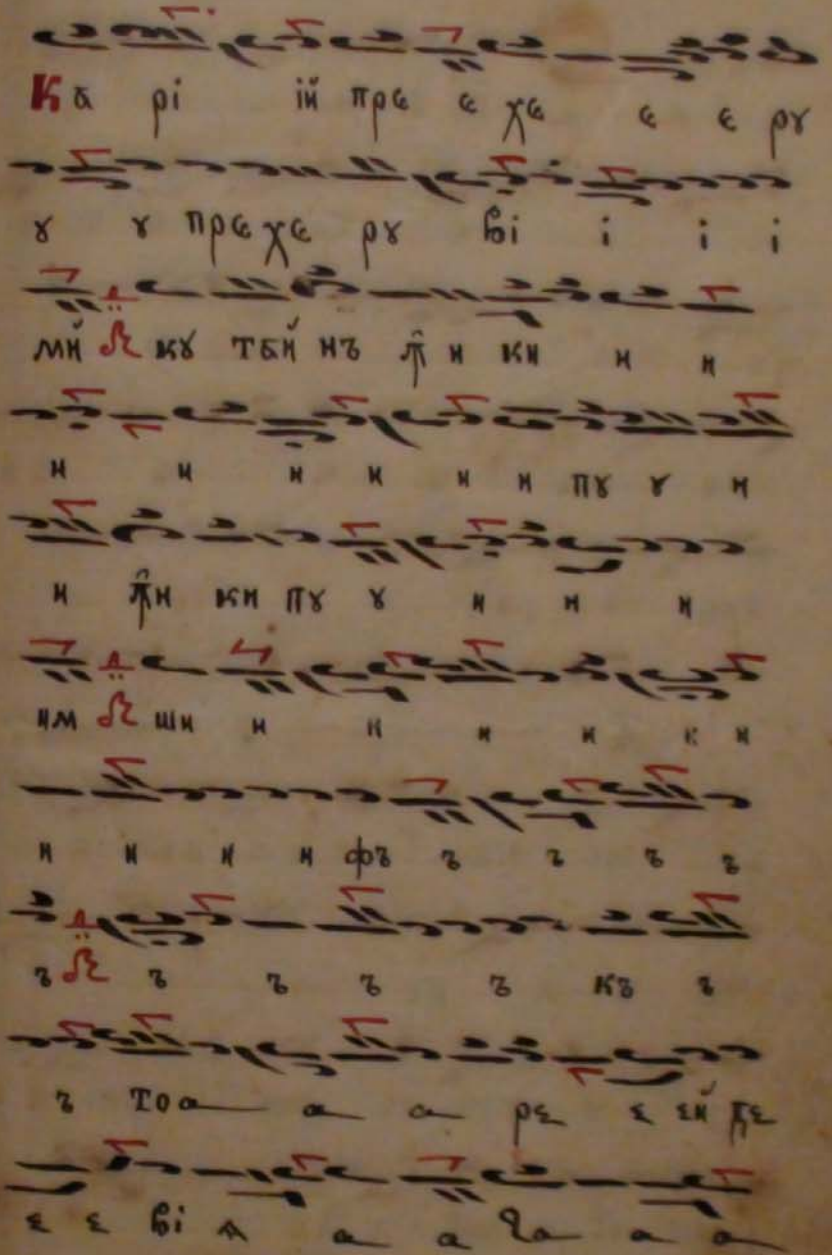 Кꙋ рі ій пре е хе е е рꙋ
ꙋ ꙋ пре хе рꙋ ві і і і
мй кꙋ тѣй нъ и ки и и
и и и и и и пꙋ ꙋ и
и ки пꙋ ꙋ и и и
им ши и и и и и и
и и и и фъ ъ ъ ъ ъ
ъ ъ ъ ъ ъ къ ъ
ъ тоа а а ре е ей де
е е ві а а а а